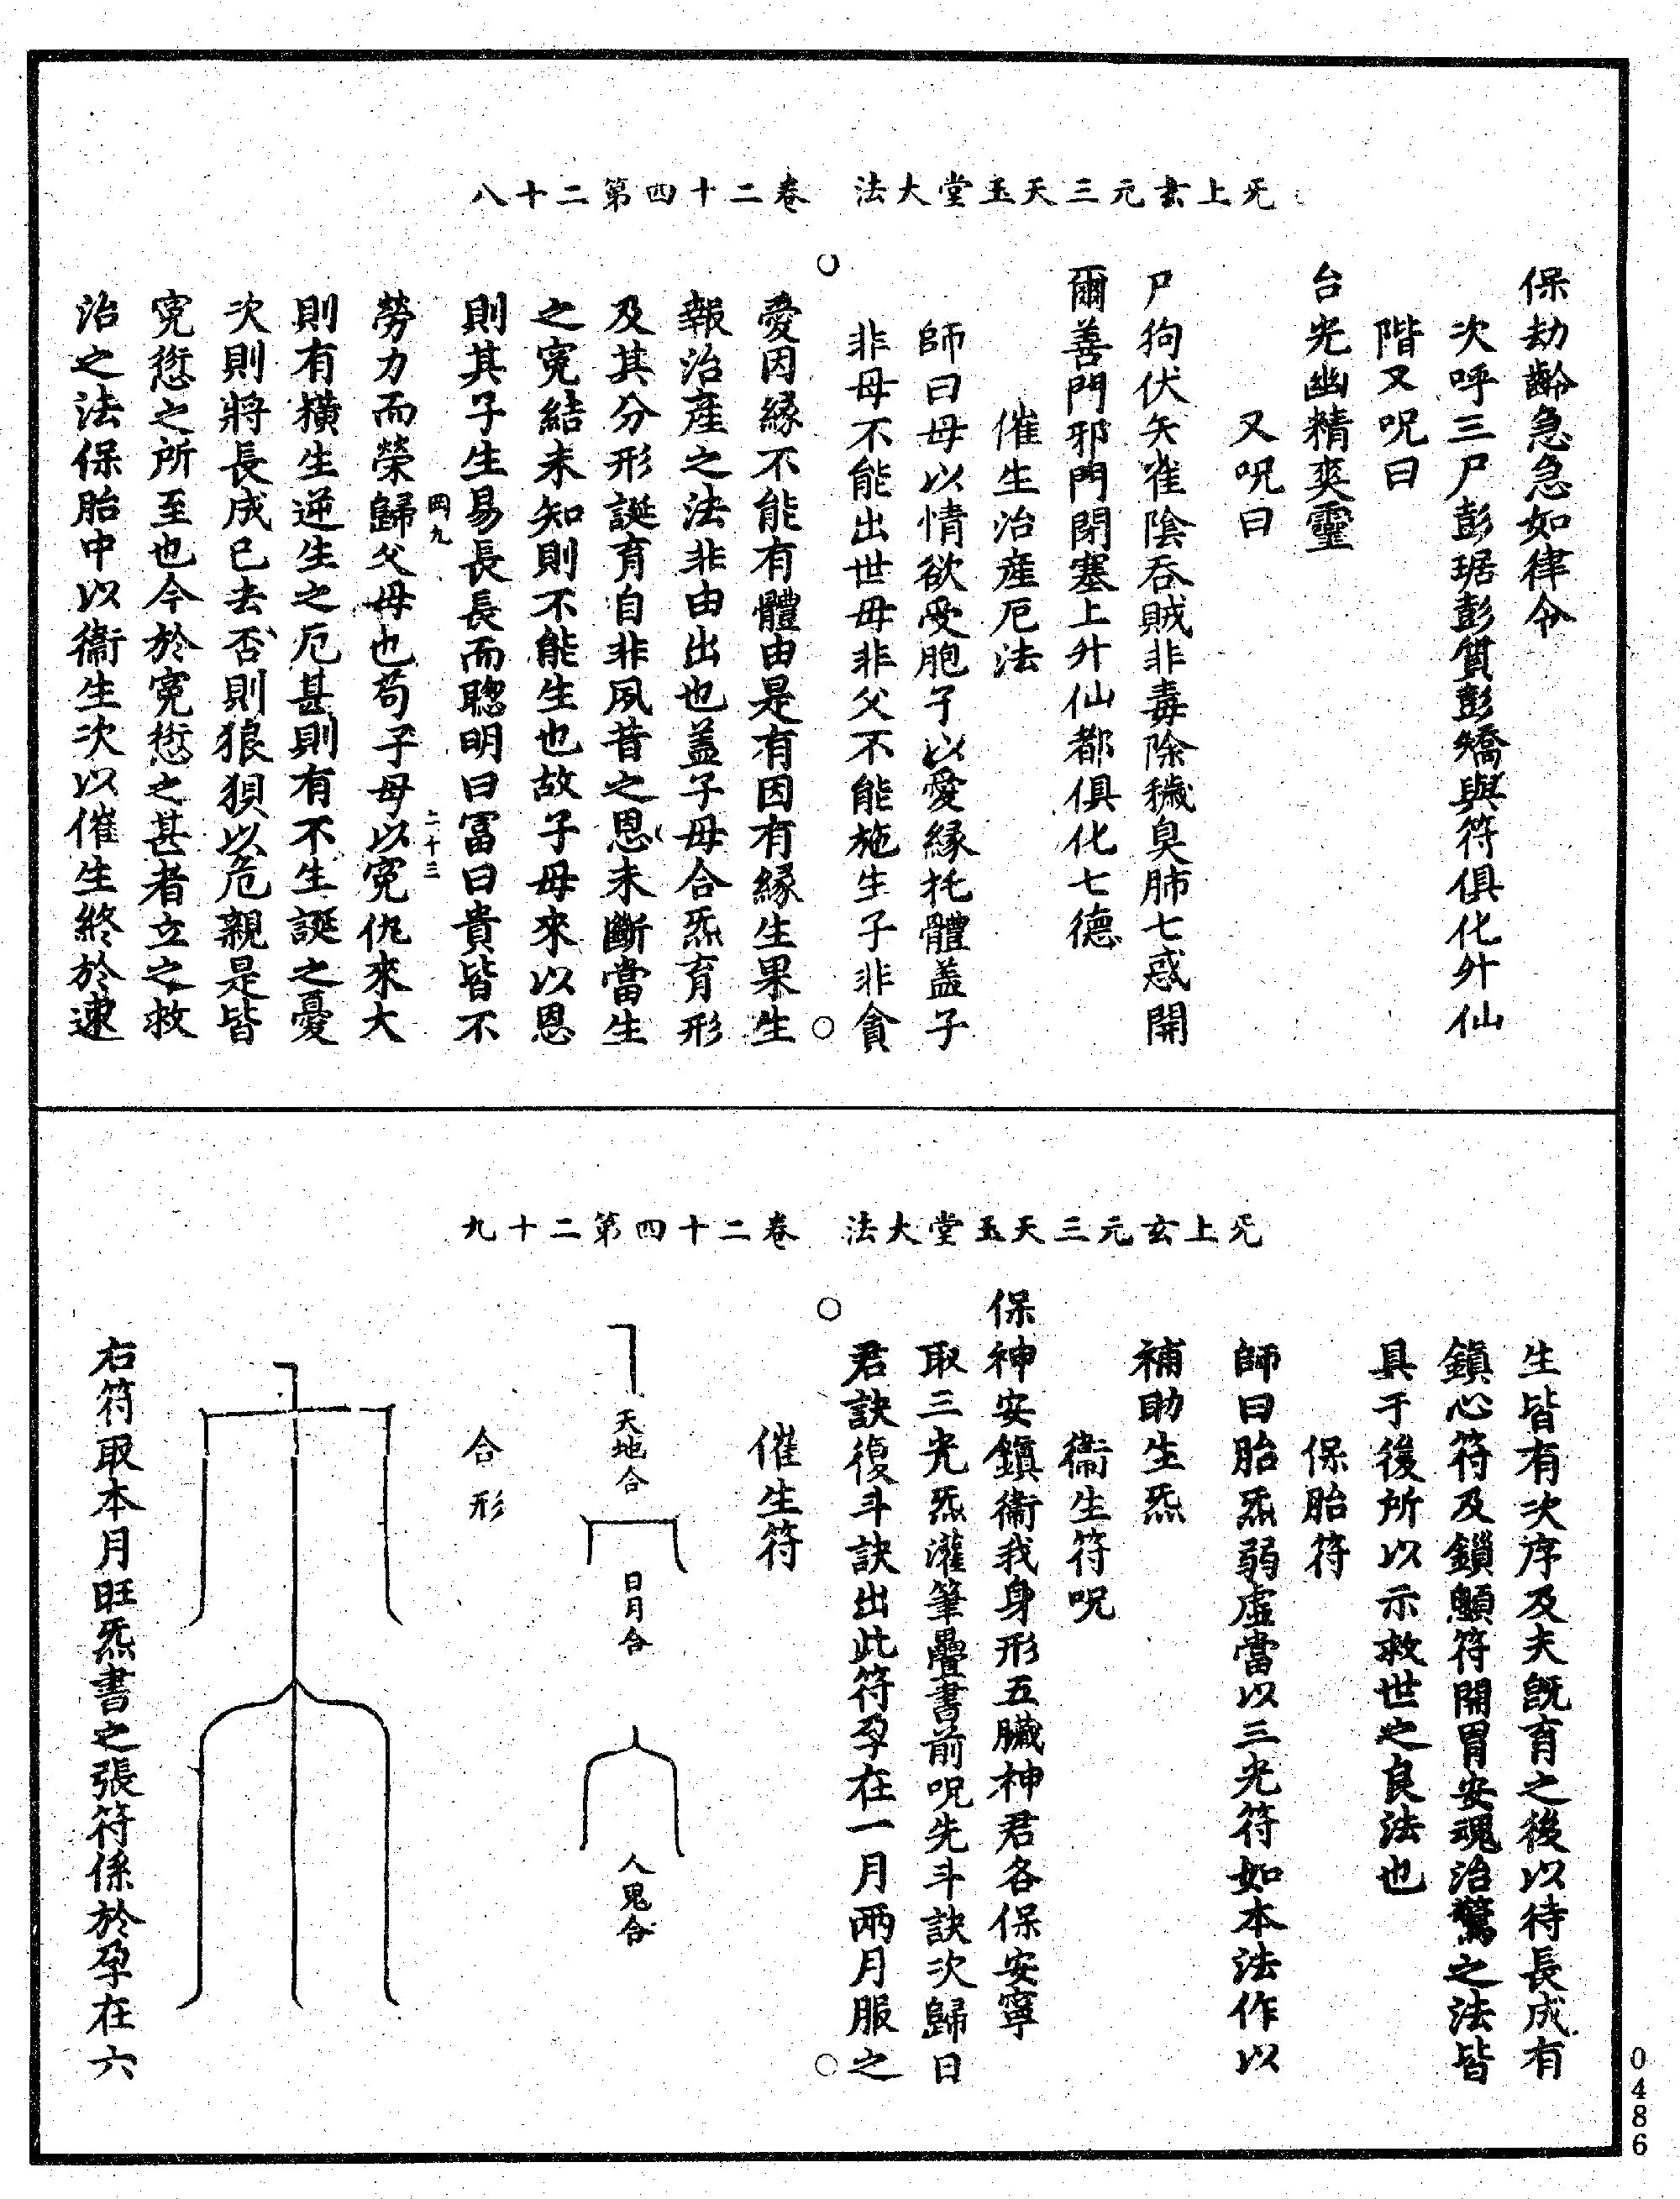 无上玄元三天玉堂大法　卷二十四第二十八
保劫齡急急如律令
次呼三尸彭琚彭質彭矯與符俱化升仙
階又呪曰
台光幽精爽靈
又呪曰
尸狗伏矢雀陰吞賊非毒除穢臭肺七惑開
爾善門邪門閉塞上升仙都俱化七德
催生治產厄法
師曰母以情欲受胞子以愛緣托體蓋子
非母不能出世母非父不能施生子非貪
愛因緣不能有體由是有因有緣生果生
報治產之法非由出也蓋子母合炁育形
及其分形誕育自非夙昔之恩未斷當生
之寃結未知則不能生也故子母來以恩
則其子生易長長而聰明曰冨曰貴皆不
勞力而榮歸父母也苟子母以寃仇來大
罔九
二十三
則有橫生逆生之厄甚則有不生誕之憂
次則將長成已去否則狼狽以危親是皆
寃愆之所至也今於寃愆之甚者立之救
治之法保胎中以衞生次以催生終於速
无上玄元三天玉堂大法　卷二十四第二十九
生皆有次序及夫旣育之後以待長成有
鎭心符及鎖顖符開胃安魂治驚之法皆
具于後所以示救世之良法也
保胎符
師曰胎炁弱虛當以三光符如本法作以
補助生炁
衞生符呪
保神安鎭衞我身形五臟神君各保安寧
取三光炁灌筆疊書前呪先斗訣次歸日
君訣復斗訣出此符孕在一月兩月服之
催生符
天地合
日月合
人鬼合
合形
右符取本月旺炁書之張符係於孕在六
0486